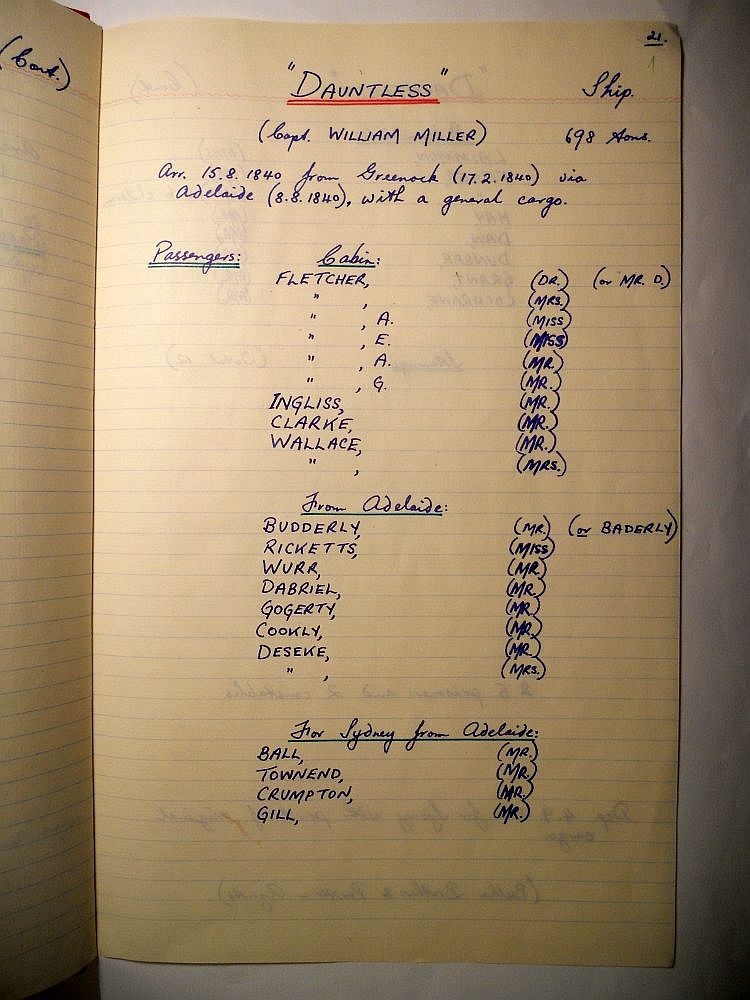 (Cont.)
21.
1
"DAUNTLESS" Ship.
(Capt. WILLIAM MILLER) 698 tons.
Arr. 15.8.1840 from Greenock (17.2.1840) via
Adelaide (8.8.1840), with a general cargo.
Passengers: Cabin:
FLETCHER, (DR.) (or MR. D.)
" , (MRS.)
" , A. (MISS)
" , E. (MISS)
" , A. (MR.)
" , G. (MR.)
INGLISS, (MR.)
CLARKE, (MR.)
WALLACE, (MR.)
" , (MRS.)
From Adelaide:
BUDDERLY, (MR.) (or BADERLY)
RICKETTS, (MISS)
WURR, (MR.)
DABRIEL, (MR.)
GOGERTY, (MR.)
COOKLY, (MR.)
DESEKE, (MR.)
" , (MRS.)
For Sydney from Adelaide:
BALL, (MR.)
TOWNEND, (MR.)
CRUMPTON, (MR.)
GILL, (MR.)